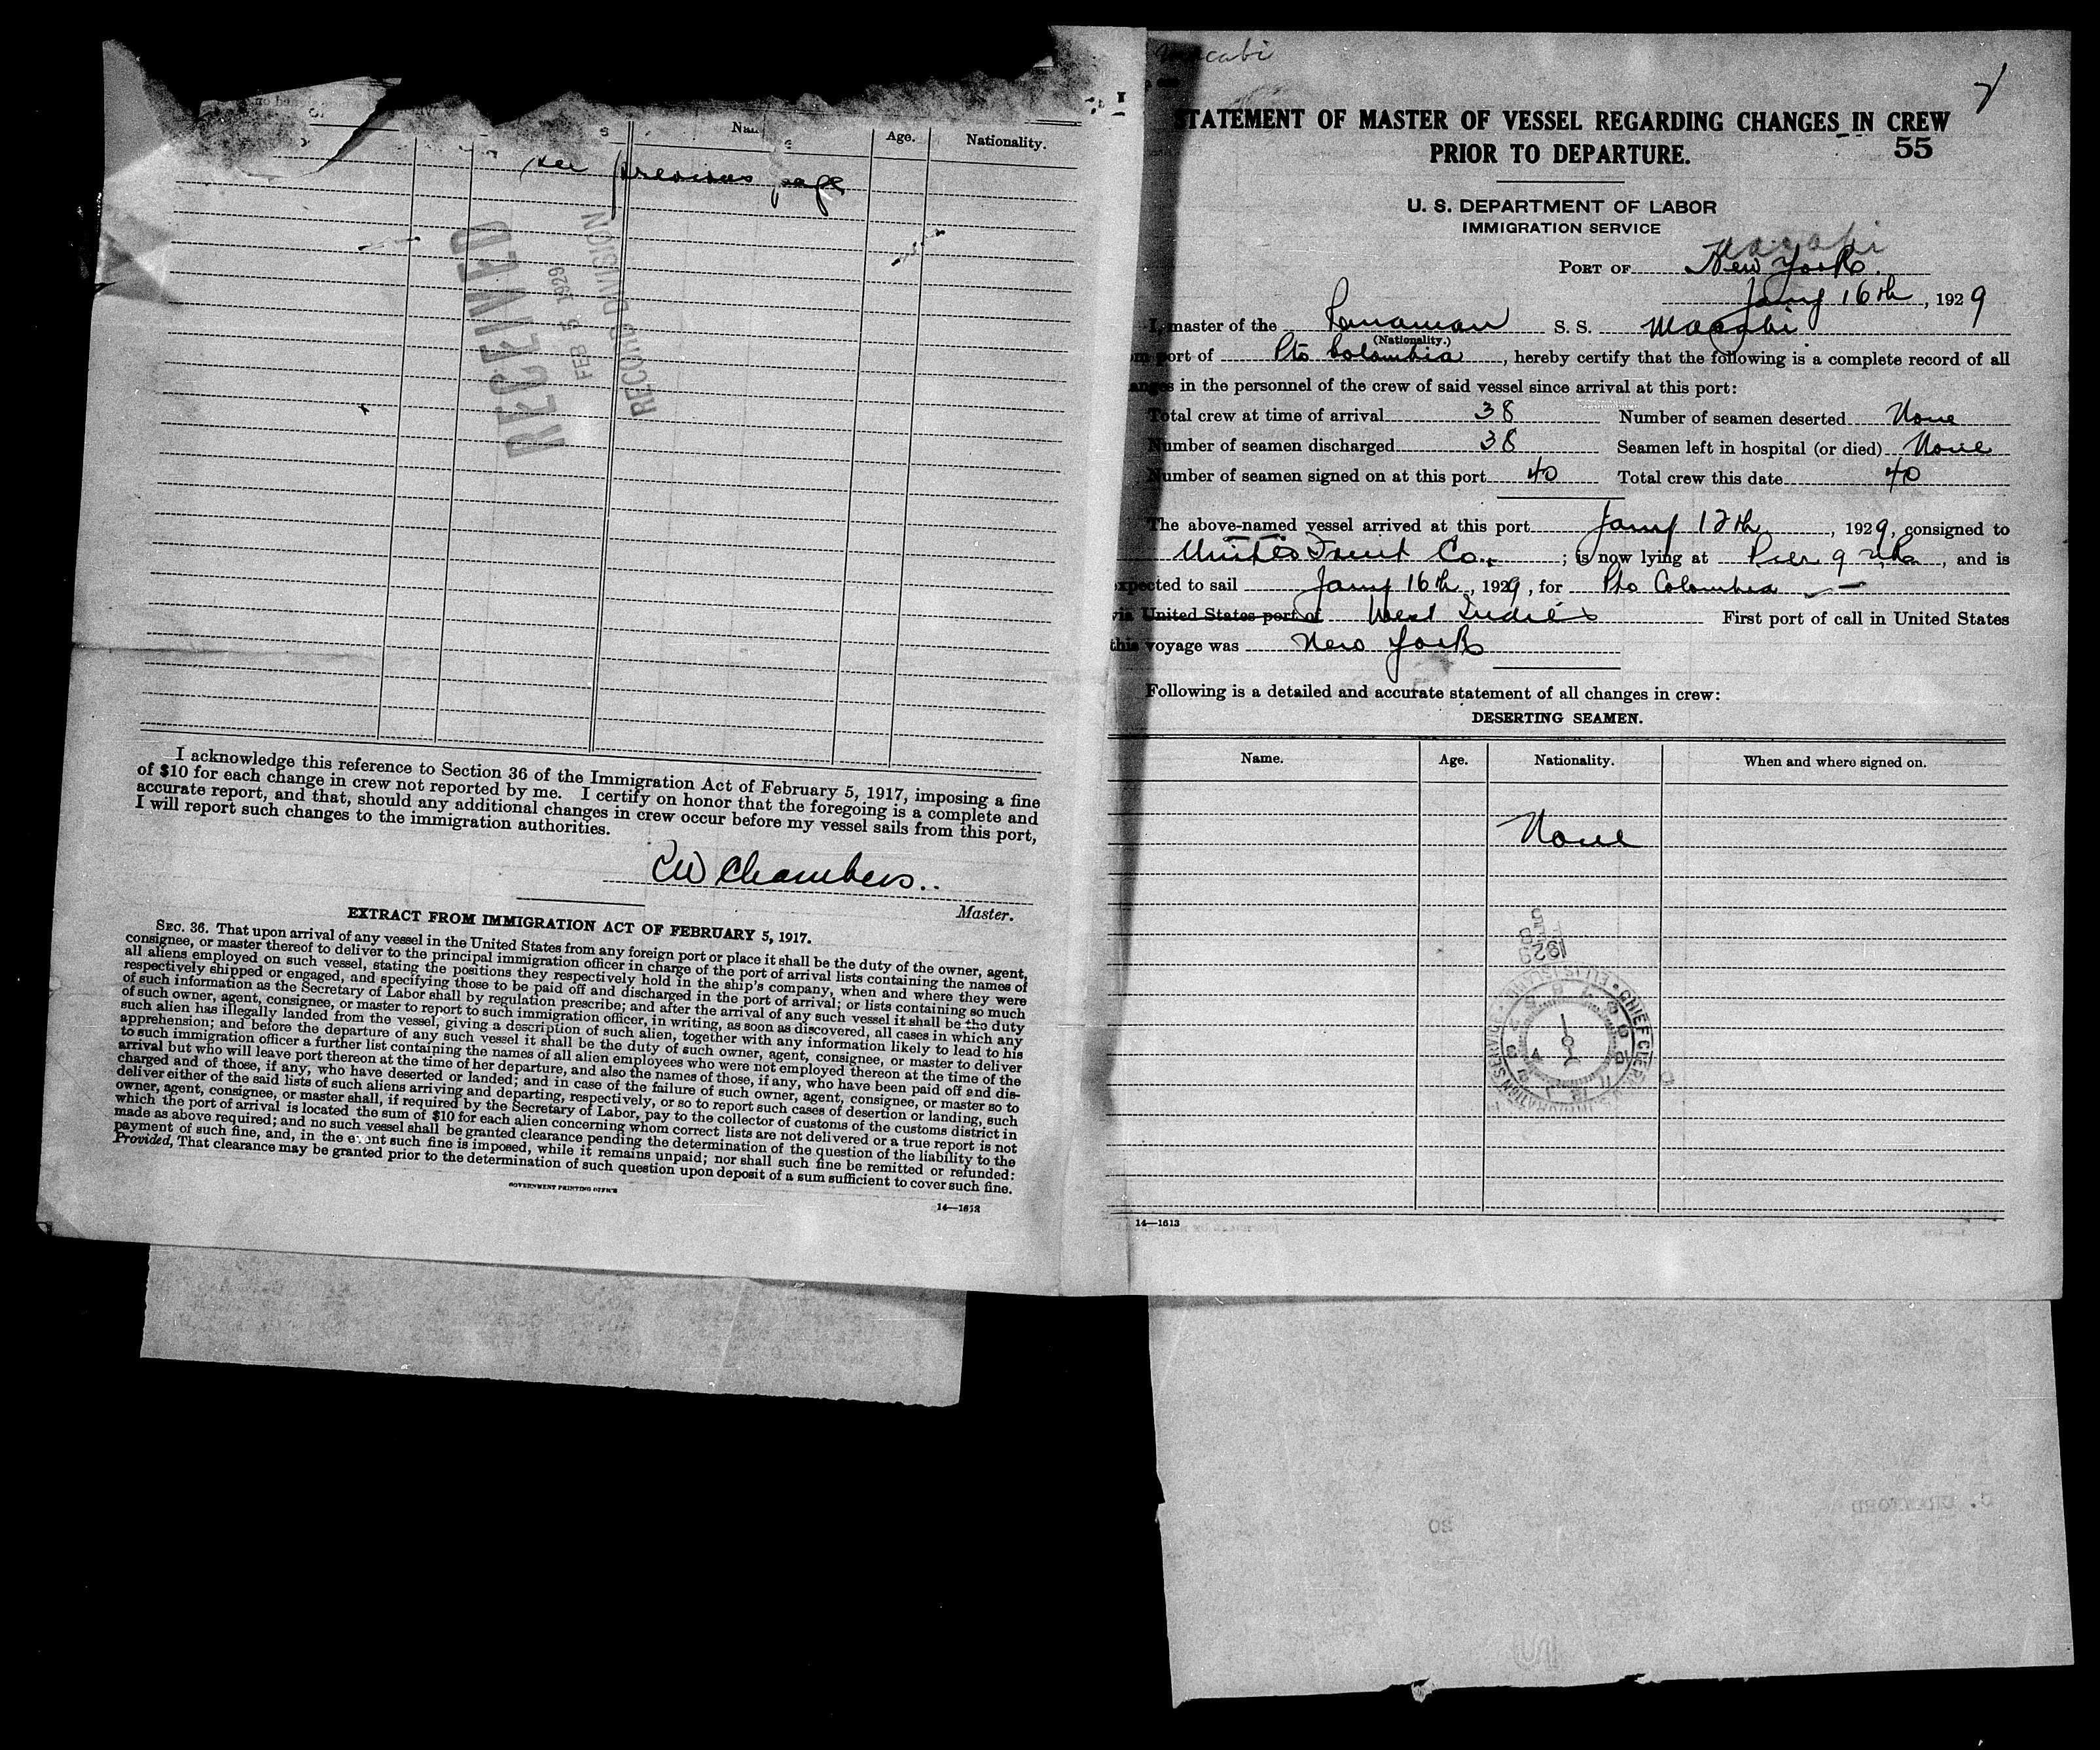 Age.
Nationality.
see previous page
RECEIVED
FEB 5 1929
RECORD DIVISION
I acknowledge this reference to Section 36 of the Immigration Act of February 5, 1917, imposing a fine
of $10 for each change in crew not reported by me. I certify on honor that the foregoing is a complete and
accurate report, and that, should any additional changes in crew occur before my vessel sails from this port,
I will report such changes to the immigration authorities.
Chambers
Master.
EXTRACT FROM IMMIGRATION ACT OF FEBRUARY 5, 1917.
SEC. 36. That upon arrival of any vessel in the United States from any foreign port or place it shall be the duty of the owner, agent,
consignee, or master thereof to deliver to the principal immigration officer in charge of the port of arrival lists containing the names of
all aliens employed on such vessel, stating the positions they respectively hold in the ship's company, when and where they were
respectively shipped or engaged, and specifying those to be paid off and discharged in the port of arrival; or lists containing so much
of such information as the Secretary of Labor shall by regulation prescribe; and after the arrival of any such vessel it shall be the duty
of such owner, agent, consignee, or master to report to such immigration officer, in writing, as soon as discovered, all cases in which any
such alien has illegally landed from the vessel, giving a description of such alien, together with any information likely to lead to his
apprehension; and before the departure of any such vessel it shall be the duty of such owner, agent, consignee, or master to deliver
to such immigration officer a further list containing the names of all alien employees who were not employed thereon at the time of the
arrival but who will leave port thereon at the time of her departure, and also the names of those, if any, who have been paid off and dis-
charged and of those, if any, who have deserted or landed; and in case of the failure of such owner, agent, consignee, or master so to
deliver either of the said lists of such aliens arriving and departing, respectively, or so to report such cases of desertion or landing, such
owner, agent, consignee, or master shall, if required by the Secretary of Labor, pay to the collector of customs of the customs district in
which the port of arrival is located the sum of $10 for each alien concerning whom correct lists are not delivered or a true report is not
made as above required; and no such vessel shall be granted clearance pending the determination of the question of the liability to the
payment of such fine, and, in the event such fine is imposed, while it remains unpaid; nor shall such fine be remitted or refunded:
Provided, That clearance may be granted prior to the determination of such question upon deposit of a sum sufficient to cover such fine.
GOVERNMENT PRINTING OFFICE
14—1613
Macabi
STATEMENT OF MASTER OF VESSEL REGARDING CHANGES IN CREW
PRIOR TO DEPARTURE.
55
U. S. DEPARTMENT OF LABOR
IMMIGRATION SERVICE
Macabi
PORT OF New York.
Jany 16th, 1929
I, master of the Panaman S. S. Macabi
(Nationality.)
port of Pto Colombia, hereby certify that the following is a complete record of all
in the personnel of the crew of said vessel since arrival at this port:
Total crew at time of arrival 38 Number of seamen deserted None
Number of seamen discharged 38 Seamen left in hospital (or died) None
Number of seamen signed on at this port 40 Total crew this date 40
The above-named vessel arrived at this port Jany 12th, 1929, consigned to
United Fruit Co.; is now lying at Pier 9, and is
expected to sail Jany 16th, 1929, for Pto Colombia
via United States port of West Indies First port of call in United States
this voyage was New York
Following is a detailed and accurate statement of all changes in crew:
DESERTING SEAMEN.
Name. Age. Nationality. When and where signed on.
None
1929
FEB
5
CHIEF CLERK
14—1613